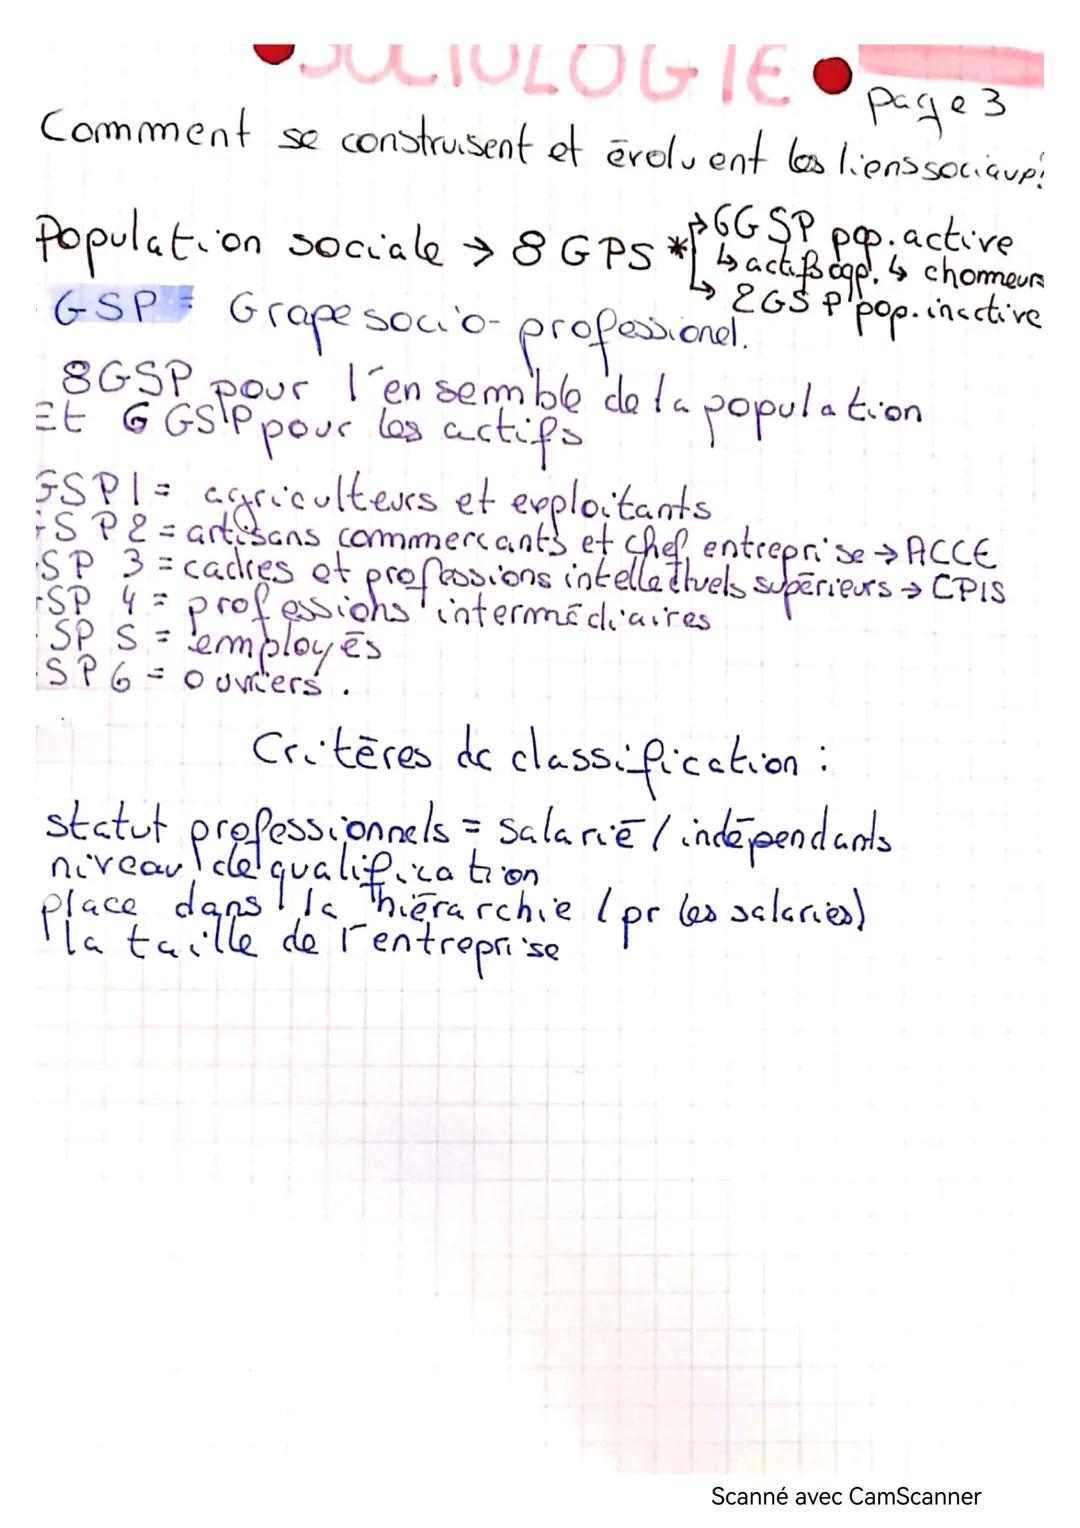 SOCIOLOGIE
page 3
Comment se construisent et évoluent les liens sociaux?
Population sociale → 8 GPS *
→ 6GSP pop. active
↳ actifs ocp. ↳ chomeurs
↳ 2GSP pop. inactive
GSP = Grape socio-professionel.
8GSP pour l'ensemble de la population
Et 6 GSP pour les actifs
GSP1 = agriculteurs et exploitants
GSP2 = artisans commercants et chef entreprise → ACCE
SP 3 = cadres et professions intellectuels supérieurs → CPIS
SP 4 = professions intermédiaires
SP 5 = employés
SP 6 = ouvriers.
Critères de classification :
statut professionnels = salarié / indépendants
niveau de qualification
place dans la hiérarchie (pr les salariés)
la taille de l'entreprise
Scanné avec CamScanner